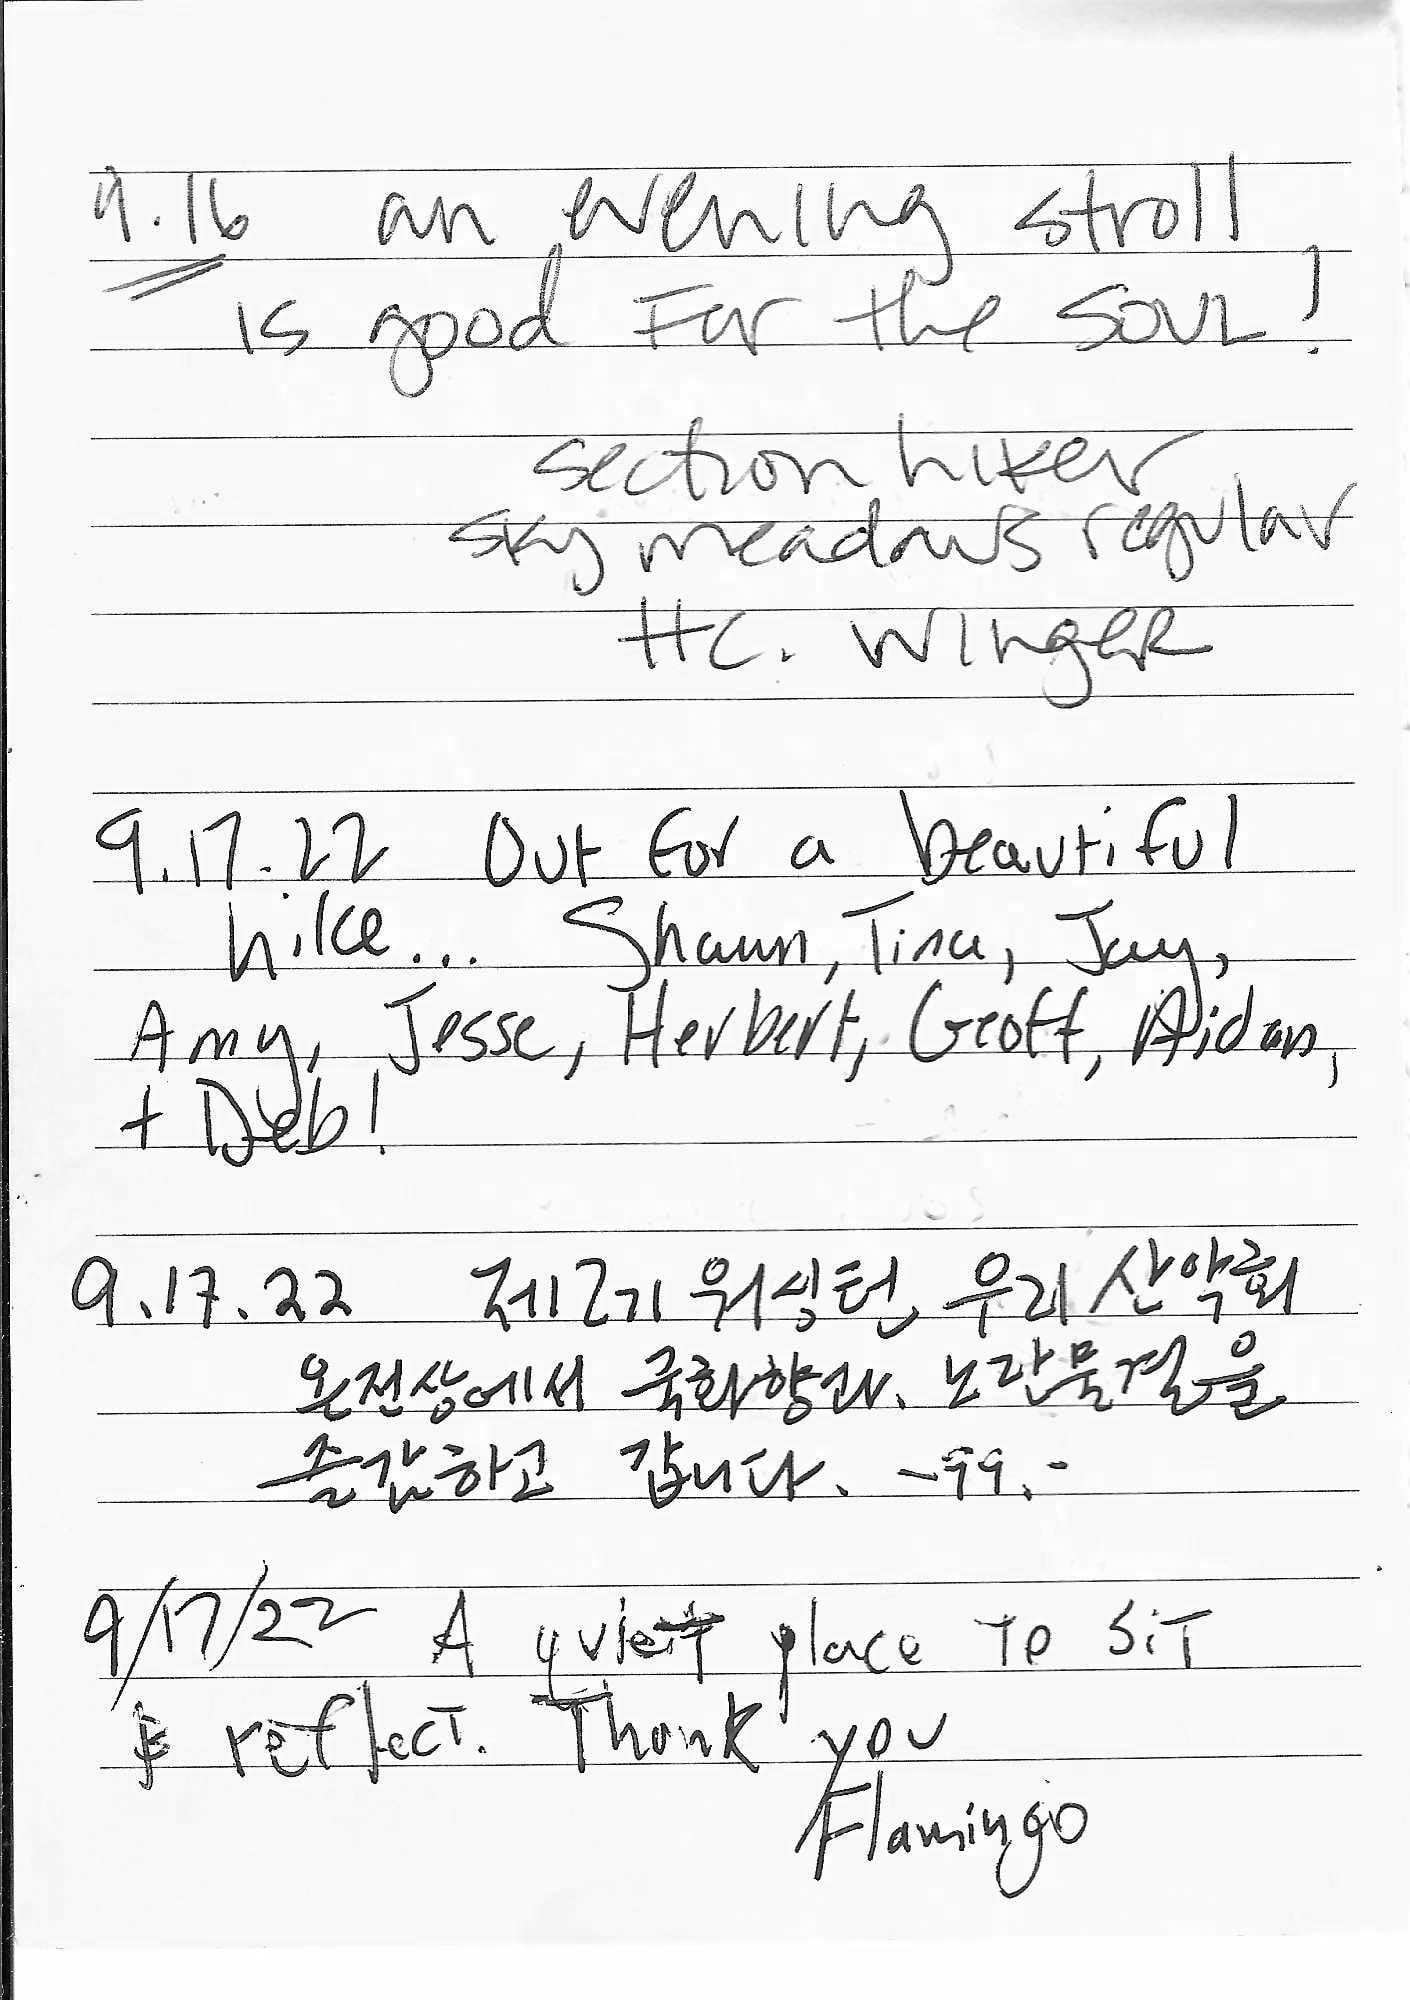 9.16 an evening stroll
is good For the SOUL!
section hiker
sky meadows regular
HC. WINgER
9.17.22 Out for a beautiful
hike... Shaun, Tina, Jay,
Amy, Jesse, Herbert, Geoff, Aidan,
+ Deb!
9.17.22 제12기 워싱턴 우리 산악회
온전상에서 국화향과. 노란물결을
즐감하고 갑니다. -99.-
9/17/22 A quiet place to sit
& reflect. Thank you
Flamingo